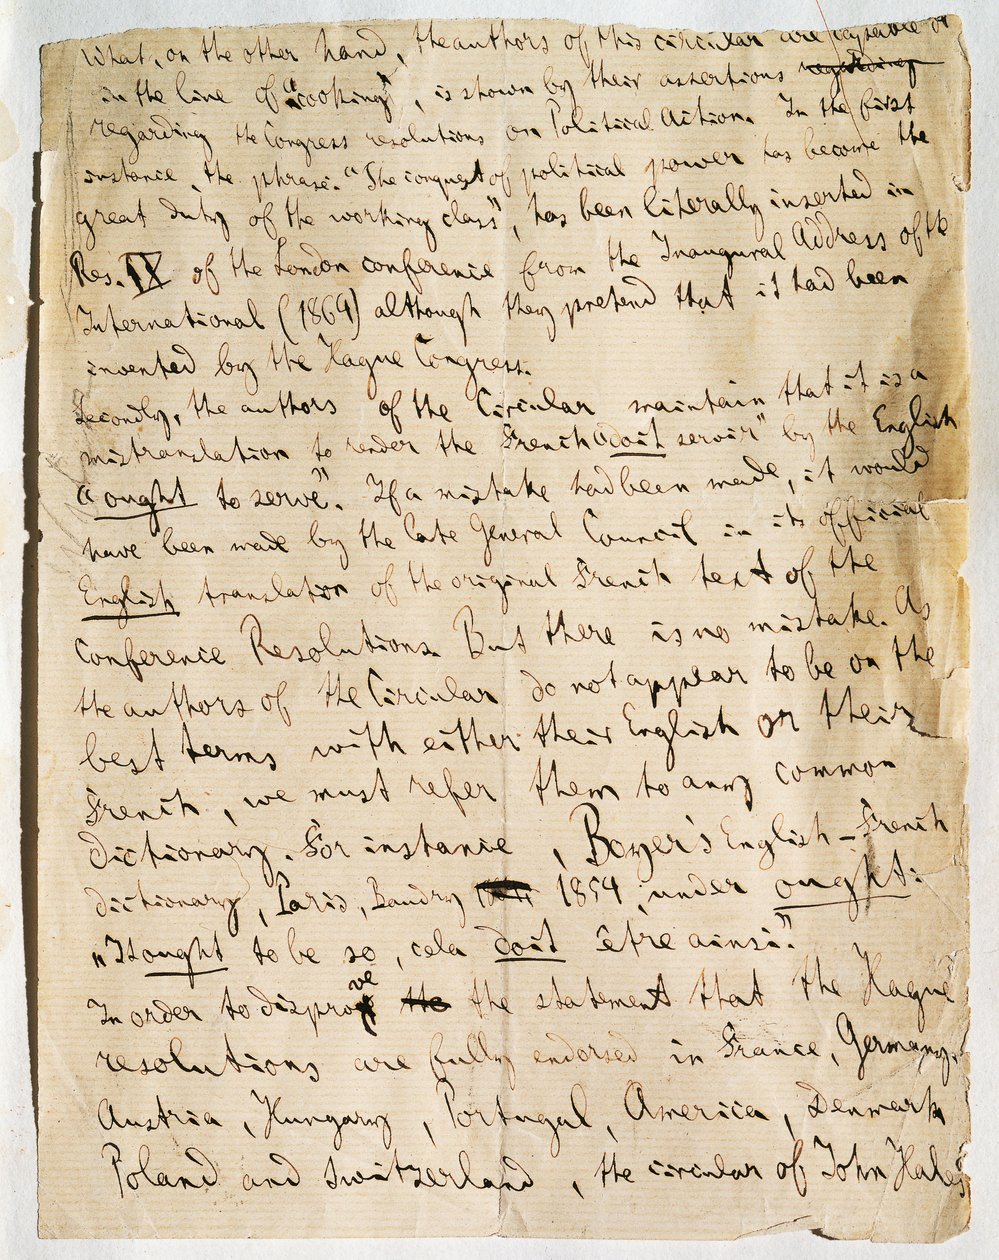 What, on the other hand, the authors of this circular are capable of
in the line of "cooking", is shown by their assertions regarding
regarding the Congress resolutions on Political Action. In the first
instance, the phrase: "The conquest of political power has become the
great duty of the working class", has been literally inserted in
Res. IX of the London conference from the Inaugural Address of the
International (1864) although they pretend that it had been
invented by the Hague Congress.
Secondly, the authors of the Circular maintain that it is a
mistranslation to render the French "doit servir" by the English
"ought to serve". If a mistake had been made, it would
have been made by the late General Council in its official
English translation of the original French text of the
Conference Resolutions. But there is no mistake. As
the authors of the Circular do not appear to be on the
best terms with either their English or their
French, we must refer them to any common
dictionary. For instance, Boyer's English-French
dictionary, Paris, Baudry 1854, under ought:
"It ought to be so, cela doit être ainsi."
In order to disprove the the statement that the Hague
resolutions are fully endorsed in France, Germany,
Austria, Hungary, Portugal, America, Denmark
Poland and Switzerland, the circular of John Hales